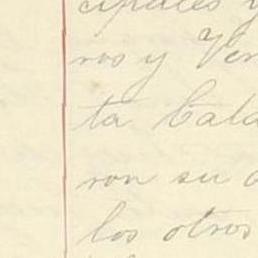 cipales y
ros y Ven
ta Cala
ron su a
los otros